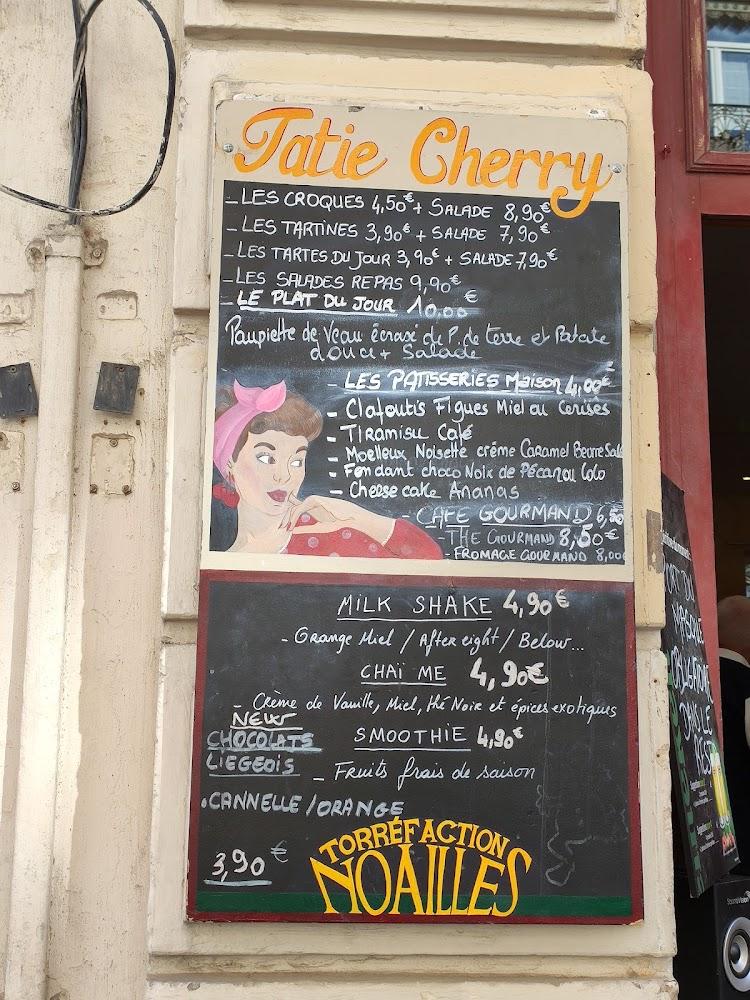 Tatie Cherry
- LES CROQUES 4,50€ + SALADE 8,90€
- LES TARTINES 3,90€ + SALADE 7,90€
- LES TARTES DU JOUR 3,90€ + SALADE 7,90€
- LES SALADES REPAS 9,90€
- LE PLAT DU JOUR 10,00€
Paupiette de Veau écrasé de P. de terre et Patate
douce + Salade
- LES PATISSERIES Maison 4,00€
- Clafoutis Figues Miel ou Cerises
- Tiramisu Café
- Moelleux Noisette crème Caramel Beurre Salé
- Fondant choco Noix de Pécan ou Coco
- Cheese cake Ananas
- CAFE GOURMAND 6,50
- THE GOURMAND 8,50€
- FROMAGE GOURMAND 8,00
MILK SHAKE 4,90€
- Orange Miel / After eight / Below...
CHAÏ ME 4,90€
- Crème de Vanille, Miel, thé Noir et épices exotiques
NEW
CHOCOLATS
LIEGEOIS
SMOOTHIE 4,90€
- Fruits frais de saison
• CANNELLE / ORANGE
3,90€
TORRÉFACTION
NOAILLES
PORT DU
MASQUE
OBLIGATOIRE
DANS LE